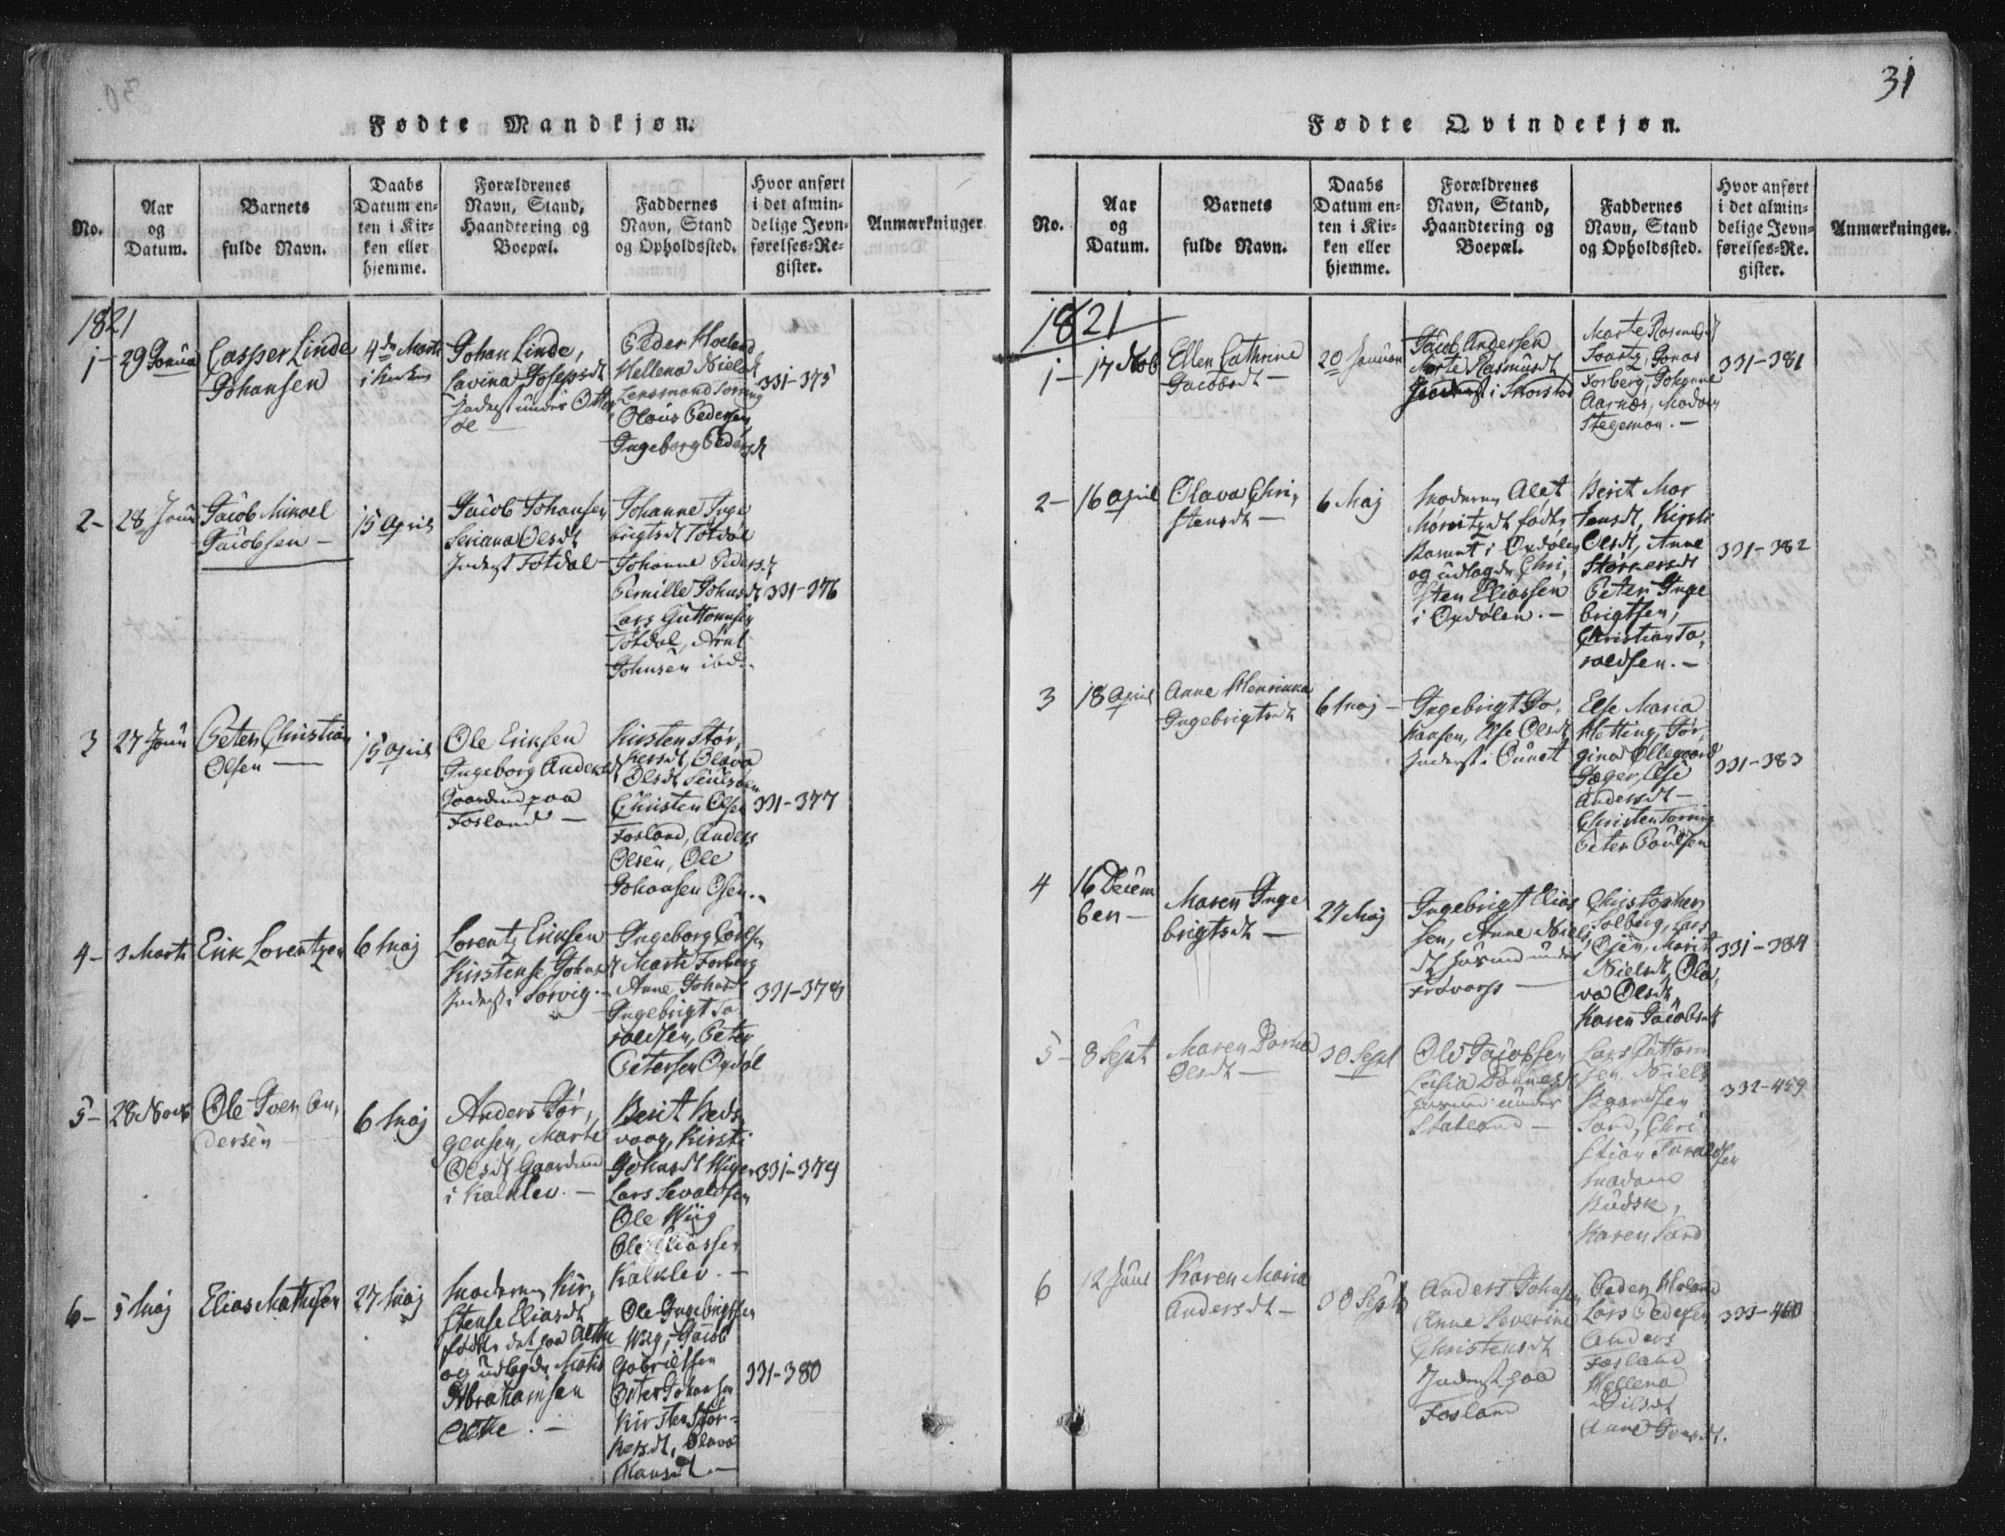 31
Fødte Mandkjøn.
No.
Aar
og
Datum.
Barnets
fulde Navn.
Daabs
Datum en-
ten i Kir-
ken eller
hjemme.
Forældrenes
Navn, Stand,
Haandtering og
Boepæl.
Faddernes
Navn, Stand
og Opholdssted.
Hvor anført
i det almin-
delige Jevn-
førelses-Re-
gister.
Anmærkninger
1821
1-
29 Januar
Casper Linde
Johansen
4de Marti
i Kirken
Johan Linde,
Lavina Josepsdt
Inderst under Otter
øe
Peder Hoeland
Hellena Nielsdt
Lensmand Torring
Olaus Pedersen
Ingeborg Pedersdt
331-375
2-
28 Janu
Jacob Mikael
Jacobsen -
15 April
Jacob Johansen
Seriana Olsdt
Inderst Totdal -
Johanne Inge
brigtsdt Totdal
Johanne Pedersdt
Pernille Johnsdt
Lars Guttormsen
Totdal, Arnt
Johnsen ibd. -
331-376
3
27 Janu
Peter Christian
Olsen —
15 April
Ole Eriksen
Ingeborg Andersdt
Gaardmd paa
Fosland —
Kirsten Stør,
kersdt, Olava
Olsdt
Christen Olsen
Fosland, Anders
Olsen, Ole
Johansen Osen. -
331-377
4-
3 Marti
Erik Lorentzen
6 Maj
Lorentz Eriksen
Kirstense Johnsdt
Inderst i Sørvig. -
Ingeborg
Marta Forberg
Anne Johnsdt
Ingebrigt To
raldsen, Peter
Petersen Opdøl
331-378
5-
28 Novb
Ole Iver An,
dersen
6 Maj
Anders Jør,
gensen, Marta
Olsdt Gaardmd
i Kalklev. —
Berit Reds,
vaag, Kirsti
Johnsdt Wigen
Lars Sevaldsen
Ole Wiig
Ole Eliassen
Kalklev. —
331-379
6-
5 Maj
Elias Mathisen
27 Maj
Moderen Kir,
stense Eliasdt
fødte det paa Althe
og udlagde Matis
Abrahamsen
Althe. -
Ole Ingebrigtsen
Wiig, Jacob
Gabrielsen
Peter Johansen
Kirsten Stør-
kersdt, Olava
Hansdt. —
331-380
Fødte Qvindekjøn.
No.
Aar
og
Datum.
Barnets
fulde Navn.
Daabs
Datum en-
ten i Kir-
ken eller
hjemme.
Forældrenes
Navn, Stand,
Haandtering og
Boepæl.
Faddernes
Navn, Stand
og Opholdssted.
Hvor anført
i det almin-
delige Jevn-
førelses-Re-
gister.
Anmærkninger.
1821
1-
17 Nob
Ellen Cathrine
Jacobsdt —
20 Januar
Jacob Andersen
Marte Rasmusdt
i Skorstad
Marte Rasmusdt
Svartz, Jonas
Forberg, Johanne
Aarnæs, Madam
Stegeman. —
331-381
2-
16 April
Olava Chri,
stensdt —
6 Maj
Moderen Alet
Moritzdt fødte
Barnet i Opdølen
og udlagde Chri,
sten Eliassen
i Opdølen. —
Berit Mor
tensdt, Kirsti
Olsdt, Anne
Størkersdt
Peter Inge
brigtsen,
Christian To,
raldsen. —
331-382
3
18 April
Anne Henrikka
Ingebrigtsdt
6 Maj -
Ingebrigt Jo,
hansen, Else Olsdt
Inderst i Dunet
Else Maria
Hetting, Jør,
gina Ollegaard
Jæger, Else
Andersdt —
Christen Torring
Peter Poulsen
331-383
4
16 Decem
ber —
Maren Inge
brigtsdt —
27 Maj
Ingebrigt Elias
sen, Anne Niels,
dt Husmd under
Fravars —
Christopher
Solberg, Lars
Osen, Marit
Nielsdt, Ola,
va Olsdt,
Karen Jacobsdt
331-384
5-
8 Sept
Maren Dorthea
Olsdt —
30 Sept
Ole Jacobsen
Lusia Tønnesdt
Husmd under
Statland —
Lars Guttorm
sen, Niels
Baardsen
Sard, Chri
stian Toraldsen
Madame
Budsk,
Karen Sard
332-459
6
12 Juni
Karen Maria
Andersdt —
30 Sept
Anders Johnsen
Anne Severine
Christensdt
Inderst paa
Fosland
Peder Holand
Lars Pedersen
Anders
Fosland
Hellena
Nilsdt
Anne Jensdt.
333-460